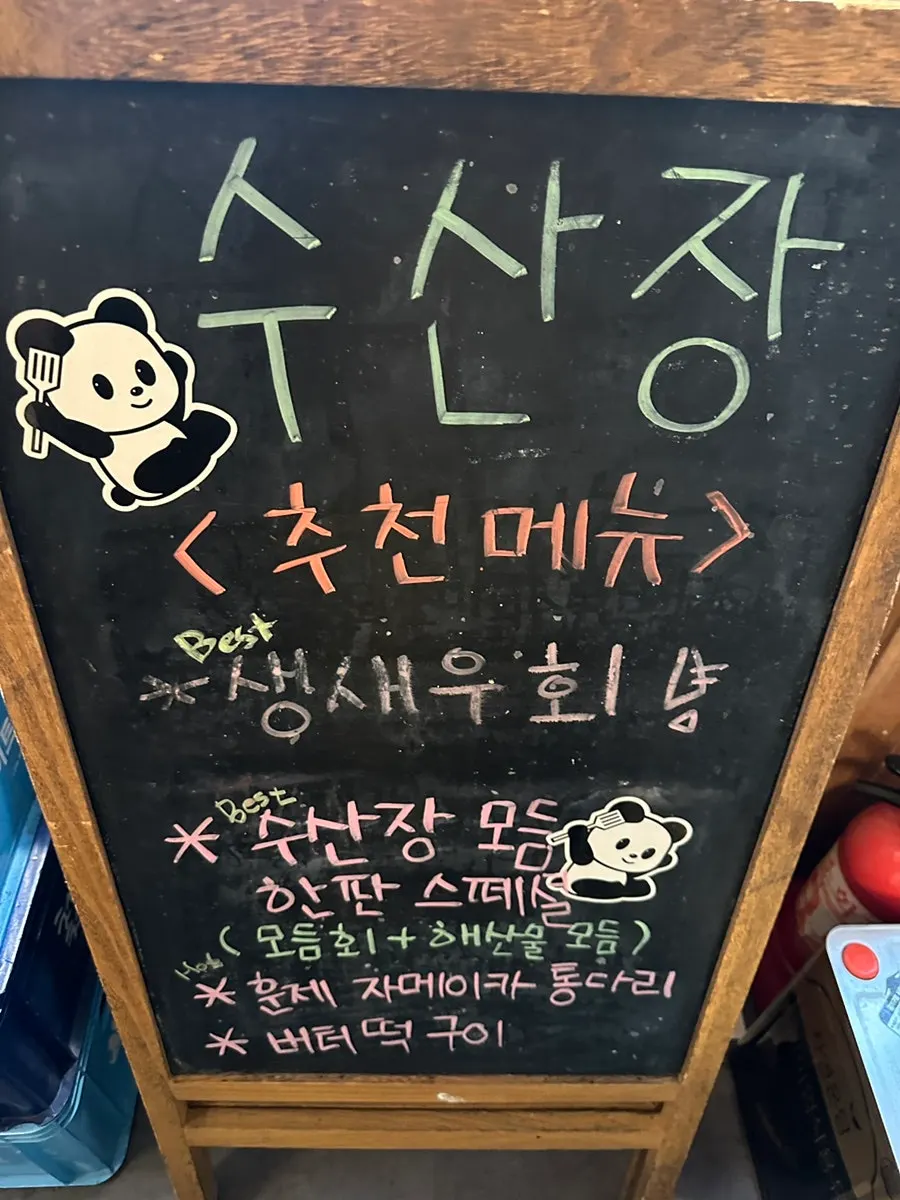 수산장
<추천메뉴>
Best
*생새우회 냥
Best
* 수산장 모듬
한판 스페셜
(모듬회+해산물 모듬)
Hot
* 훈제 자메이카 통다리
* 버터떡 구이